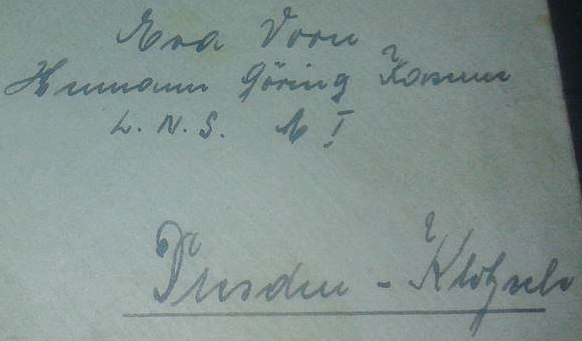 Eva Dorn
Hermann Göring Kaserne
L. N. S. I
Dresden - Klotzsche